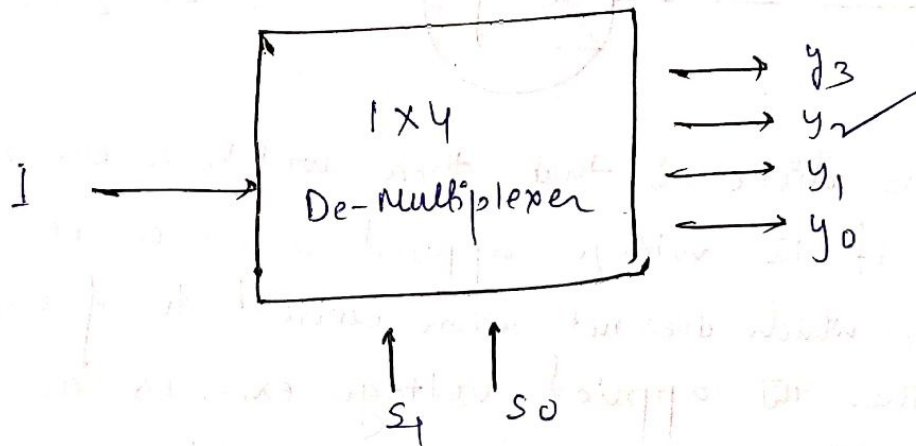 1 X 4
De-Multiplexer
I
y3
y2
y1
y0
S1 S0